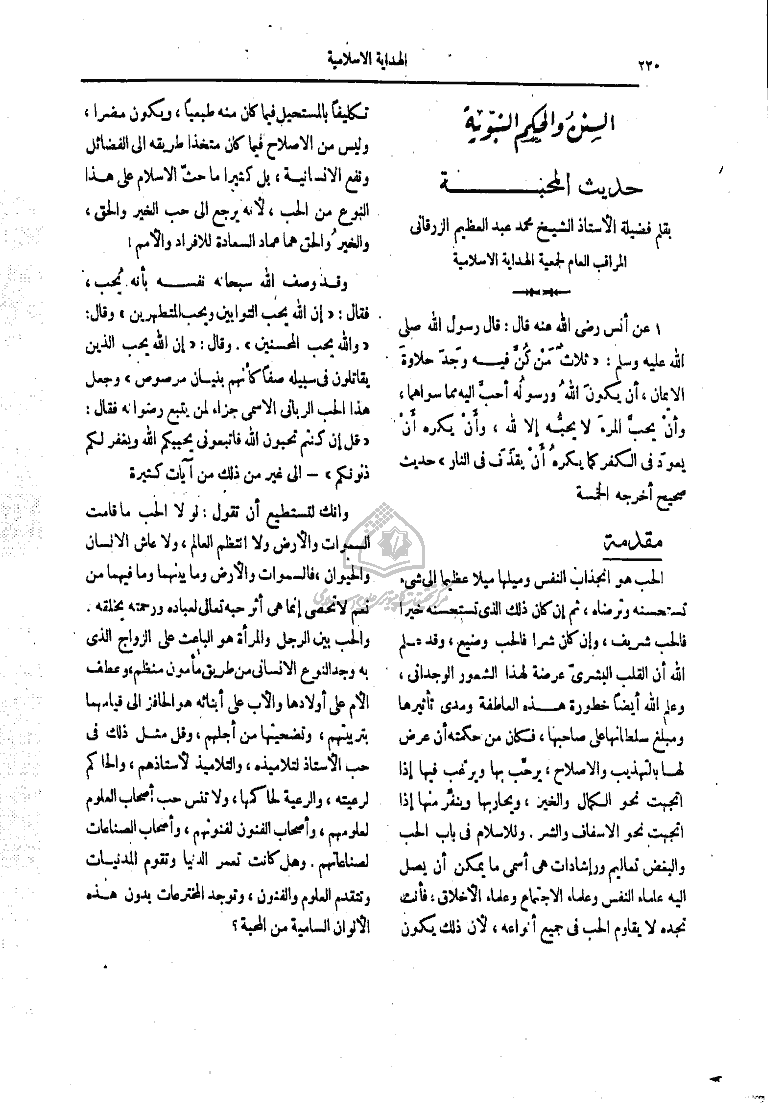 ٢٢٠
الهداية الاسلامية
السنن والحكم النبوية
حديث المحبة
بقلم فضيلة الأستاذ الشيخ محمد عبد العظيم الزرقانى
المراقب العام لجمعية الهداية الاسلامية
١ عن أنس رضى الله عنه قال: قال رسول الله صلى
الله عليه وسلم: « ثلاثٌ مَنْ كُنَّ فيـــه وجَدَ حلاوةَ
الايمان، أن يكونَ اللهُ ورسولُه أحبَّ اليه مما سواهما،
وأنْ يحبَّ المرءَ لا يحبُّه إلا لله ، وأنْ يكره أنْ
يعودَ فى الكفر كما يكرهُ أنْ يقذَف فى النار » حديث
صحيح أخرجه الخمسة
مقدمة
الحب هو انجذاب النفس وميلها ميلا عظيما الى شىء
تستحسنه وترضاه ، ثم إن كان ذلك الذى تستحسنه خيرا
فالحب شريف ، وإن كان شرا فالحب وضيع ، وقد علم
الله أن القلب البشرىّ عرضة لهذا الشعور الوجدانى ،
وعلم الله أيضاً خطورة هـــذه العاطفة ومدى تأثيرها
ومبلغ سلطانها على صاحبها ، فكان من حكمته أن عرض
لهـا بالتهذيب والاصلاح ، يرحّب بها ويرغب فيها إذا
اتجهت نحو الكمال والخير ، ويحاربها وينفّر منها إذا
اتجهت نحو الاسفاف والشر . وللاسلام فى باب الحب
والبغض تعاليم ورإشادات هى أسمى ما يمكن أن يصل
اليه علماء النفس وعلماء الاجتماع وعلماء الأخلاق ، فأنت
تجده لا يقاوم الحب فى جميع أنواعه ، لأن ذلك يكون
تكليفاً بالمستحيل فيما كان منه طبيعياً ، ويكون مضرا ،
وليس من الاصلاح فيما كان متخذا طريقه الى الفضائل
ونفع الانسانية ، بل كثيرا ما حثّ الاسلام على هـذا
النوع من الحب ، لأنه يرجع الى حب الخير والحق ،
والخيرُ والحق هما عماد السعادة للافراد والأمم !
وقـد وصف الله سبحانه نفســـه بأنه يُحب ،
فقال : « إن الله يحب التوابين ويحب المتطهرين » وقال:
« والله يحب المحسنين » . وقال : « إن الله يحب الذين
يقاتلون فى سبيله صفاً كأنهم بنيـان مرصوص » وجعل
هذا الحب الربانى الاسمى جزاء لمن يتبع رضوانه فقال :
« قل إن كنتم تحبون الله فاتبعونى يحببكم الله ويغفر لكم
ذنوبكم » — الى غير من ذلك من آيات كثيرة
وانك لتستطيع أن تقول : لولا الحب ما قامت
السموات والأرض ولا انتظم العالم ، ولا عاش الانسان
والحيوان ، فالسموات والأرض وما بينهما وما فيهما من
نعم لا تحصى إنما هى أثر حبه تعالى لعباده ورحمته بخلقه .
والحب بين الرجل والمرأة هو الباعث على الزواج الذى
به وجد النوع الانسانى من طريق مأمون منظم ، وعطف
الأم على أولادها والأب على أبنائه هو الحافز الى قيامهما
بتربيتهم ، وتضحيتها من أجلهم ، وقل مثـل ذلك فى
حب الأستاذ لتلاميذه ، والتلاميذ لأستاذهم ، والحاكم
لرعيته ، والرعية لحاكمها ، ولا تنس حب أصحاب العلوم
لعلومهم ، وأصحاب الفنون لفنونهم ، وأصحاب الصناعات
لصناعاتهم . وهل كانت تعمر الدنيا وتقوم المدنيـات
وتتقدم العلوم والفنون ، وتوجد المخترعات بدون هــذه
الألوان السامية من المحبة ؟